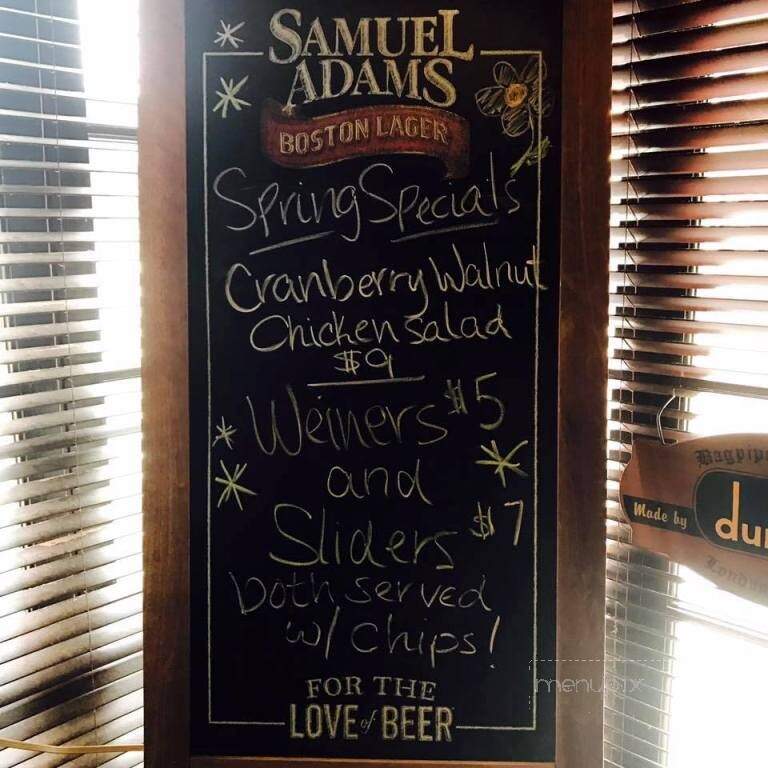 SAMUEL
ADAMS
BOSTON LAGER
Spring Specials
Cranberry Walnut
Chicken Salad
$9
Weiners $5
and
Sliders $7
both served
w/ Chips!
FOR THE
LOVE of BEER
Made by
menupix